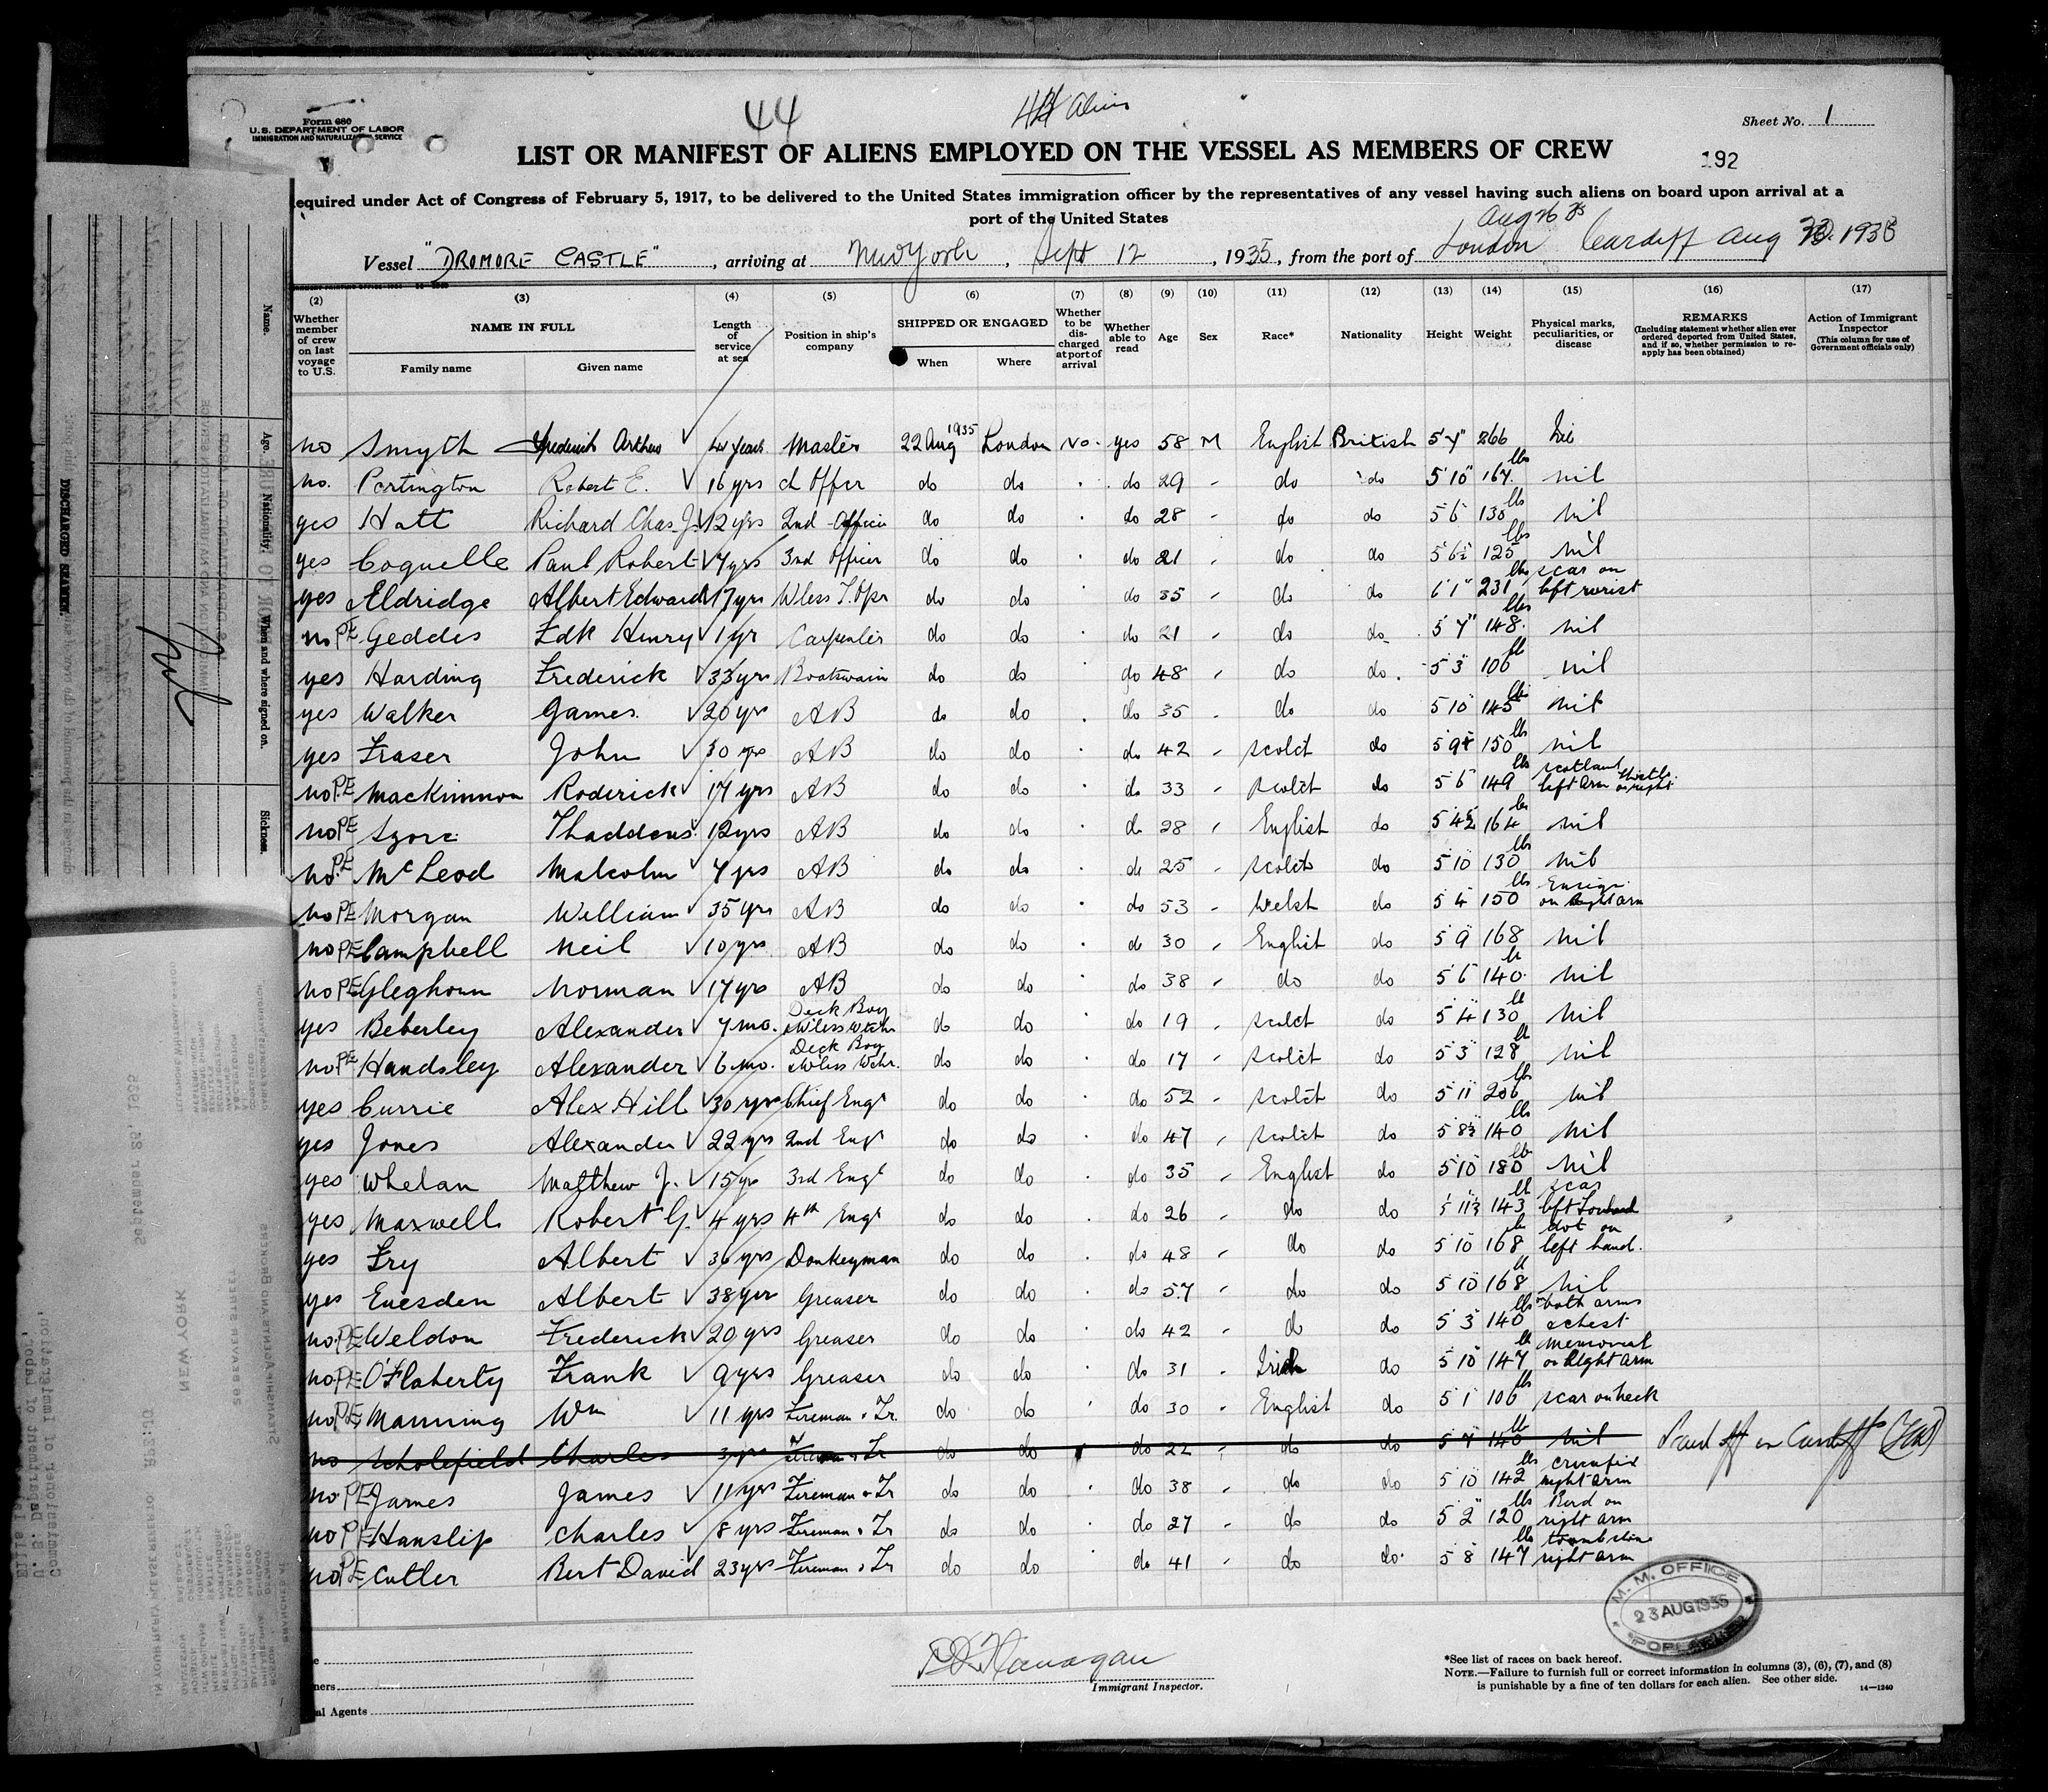 Form 680
U.S. DEPARTMENT OF LABOR
IMMIGRATION AND NATURALIZATION SERVICE
44
Sheet No. 1
LIST OR MANIFEST OF ALIENS EMPLOYED ON THE VESSEL AS MEMBERS OF CREW
192
equired under Act of Congress of February 5, 1917, to be delivered to the United States immigration officer by the representatives of any vessel having such aliens on board upon arrival at a
port of the United States
Vessel "DROMORE CASTLE", arriving at New York, Sept 12, 1935, from the port of London Aug 26 35 Cardiff Aug 1935
(2) (3) (4) (5) (6) (7) (8) (9) (10) (11) (12) (13) (14) (15) (16) (17)
Whether member of crew on last voyage to U.S.
NAME IN FULL
Family name Given name
Length of service at sea
Position in ship's company
SHIPPED OR ENGAGED
When Where
Whether to be discharged at port of arrival
Whether able to read
Age Sex Race* Nationality Height Weight
Physical marks, peculiarities, or disease
REMARKS
(Including statement whether alien ever ordered deported from United States, and if so, whether permission to reapply has been obtained)
Action of Immigrant Inspector
(This column for use of Government officials only)
no Smyth Frederick Arthur years Master 22 Aug 1935 London No. yes 58 M English British 5'7" 266 Nil
no. Partington Robert E. 16 yrs Ch Offer do do do 29 do do 5 10 167 lbs nil
yes Hatt Richard Chas J. 12 yrs 2nd Officer do do do 28 do do 5 6 130 lbs nil
yes Coquelle Paul Robert 7 yrs 3rd Officer do do do 21 do do 5 6½ 125 lbs nil
yes Eldridge Albert Edward 17 yrs Wless T. Opr do do do 35 do do 6'1" 231 lbs scar on left wrist
no PE Geddes Fdk Henry 1 yr Carpenter do do do 21 do do 5 7" 148 lbs nil
yes Harding Frederick 33 yrs Boatswain do do do 48 do do 5 3 106 lb nil
yes Walker James 20 yrs AB do do do 35 do do 5 10 145 lbs nil
yes Fraser John 30 yrs AB do do do 42 scotch do 5 9½ 150 lbs nil
no P.E MacKinnon Roderick 17 yrs AB do do do 33 scotch do 5 6 149 lbs scotland left arm thistle on right
no PE Szorc Thaddeus 12 yrs AB do do do 28 English do 5 4½ 164 lbs nil
no. PE McLeod Malcolm 7 yrs AB do do do 25 scotch do 5 10 130 lbs nil
no PE Morgan William 35 yrs AB do do do 53 Welsh do 5 4 150 lbs Ensign on right arm
no PE Campbell Neil 10 yrs AB do do do 30 English do 5 9 168 nil
no PE Gleghorn Norman 17 yrs AB do do do 38 do do 5 6 140 lb nil
yes Beberley Alexander 7 mo. Deck Boy & Wless Wtchr do do do 19 scotch do 5 4 130 lb nil
no PE Handsley Alexander 6 mo. Deck Boy & Wless Wchr. do do do 17 scotch do 5 3 128 lb nil
yes Currie Alex Hill 30 yrs Chief Engr do do do 52 scotch do 5 11 206 lbs nil
yes Jones Alexander 22 yrs 2nd Engr do do do 47 scotch do 5 8½ 140 lbs nil
yes Whelan Matthew J. 15 yrs 3rd Engr do do do 35 English do 5 10 180 lb nil
yes Maxwell Robert G. 4 yrs 4th Engr do do do 26 do do 5 11½ 143 lb scar left forehead
yes Fry Albert 36 yrs Donkeyman do do do 48 do do 5 10 168 lb dot on left hand.
yes Euesden Albert 38 yrs Greaser do do do 57 do do 5 10 168 lb nil
no. PE Weldon Frederick 20 yrs Greaser do do do 42 do do 5 3 140 lbs both arms & chest
no. PE O'Flaherty Frank 9 yrs Greaser do do do 31 Irish do 5 10 147 lb memorial on right arm
no PE Manning Wm 11 yrs Fireman & Tr. do do do 30 English do 5 1 106 lbs scar on neck
no Scholefield Charles 3 yrs Fireman & Tr do do do 22 do do 5 7 140 lb nil Paid off in Cardiff
no. PE James James 11 yrs Fireman & Tr do do do 38 do do 5 10 142 lbs crucifix right arm
no PE Hanslip Charles 8 yrs Fireman & Tr do do do 27 do do 5 2" 120 lbs Bird on right arm
no PE Cutler Bert David 23 yrs Fireman & Tr do do do 41 do do 5 8 147 lbs tombstone right arm
M. M. OFFICE
23 AUG 1935
POPLAR
Flanagan
Immigrant Inspector.
*See list of races on back hereof.
NOTE.—Failure to furnish full or correct information in columns (3), (6), (7), and (8)
is punishable by a fine of ten dollars for each alien. See other side.
14—1240
ners
al Agents
Name. Age. Nationality. When and where signed on. Sickness.
DISCHARGED SEAMEN
U.S. DEPARTMENT OF LABOR
IMMIGRATION AND NATURALIZATION SERVICE
nil
September 25, 1935
NEW YORK
26 BEAVER STREET
STEAMSHIP AGENTS AND BROKERS
IN YOUR REPLY PLEASE REFER TO
U. S. Department of Labor,
Commissioner of Immigration,